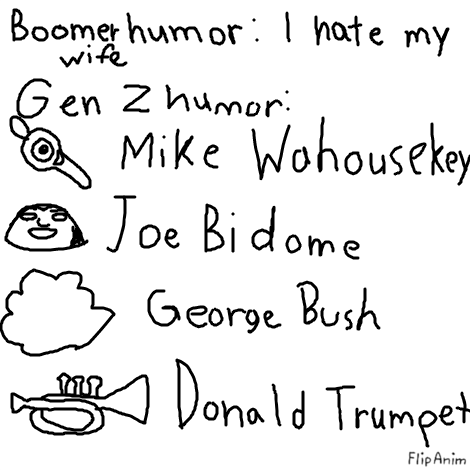 Boomer humor: I hate my
wife
Gen Z humor:
Mike Wahousekey
Joe Bidome
George Bush
Donald Trumpet
FlipAnim